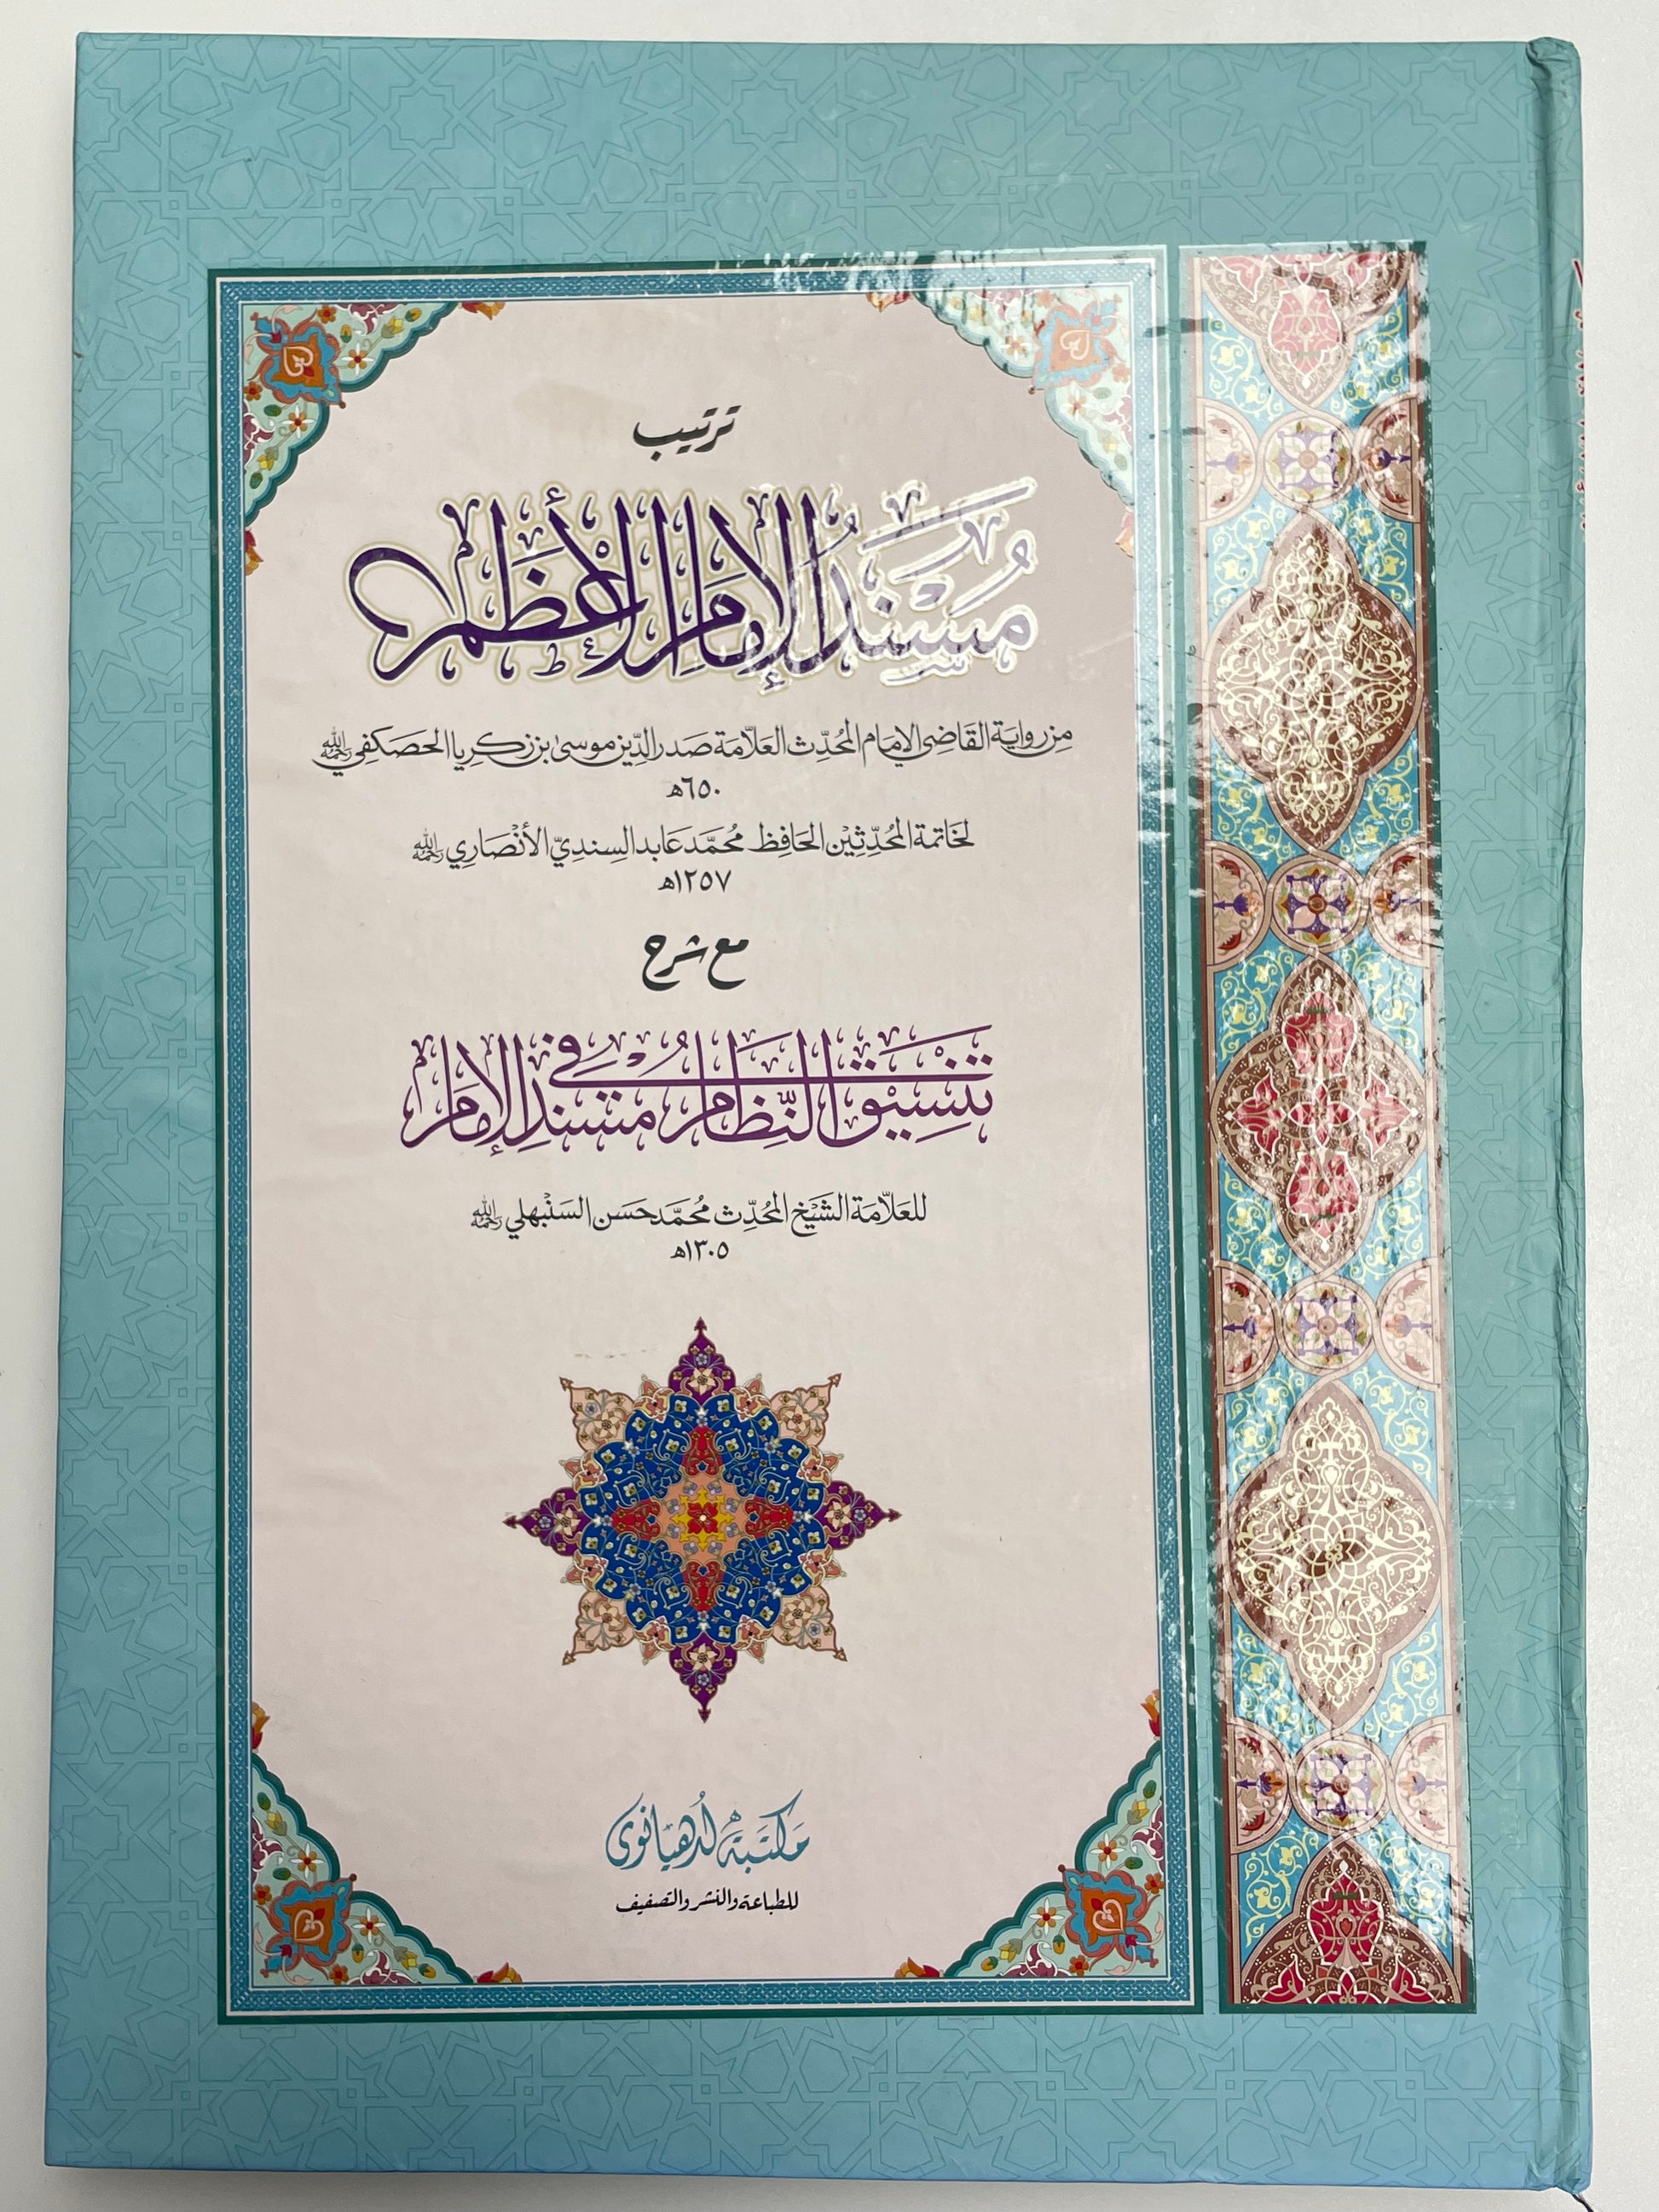 ترتيب
مُسْنَدُ الإِمَامِ الأَعْظَمِ
من رواية القاضي الإمام المُحدِّث العلاّمة صدر الدّين موسىٰ بن زكريا الحصكفي رحمه الله
٦٥٠هـ
لخاتمة المُحدِّثِيْن الحَافِظ مُحمَّد عَابد السِنديّ الأنْصَارِي رحمه الله
١٢٥٧هـ
مع شرح
تَنْسِيْقُ النِّظَامِ فِي مُسْنَدِ الإِمَامِ
للعَلاّمَة الشَيْخ المُحدِّث مُحمَّد حَسَن السَنْبهلي رحمه الله
١٣٠٥هـ
مَكتَبَة لُدهيانوى
للطباعة والنشر والتصفيف